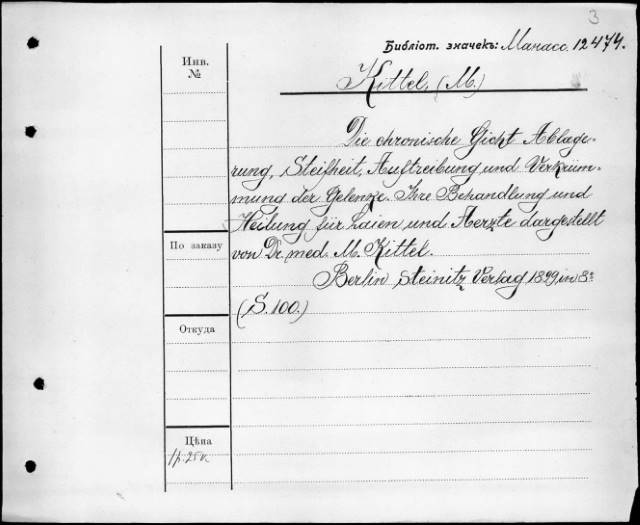 3
Библіот. значекъ: Манасс. 12474.
Инв.
№
Kittel, (M.)
Die chronische Gicht Ablage-
rung, Steifheit, Auftreibung und Verkrüm-
mung der Gelenke. Ihre Behandlung und
Heilung für Laien und Aerzte dargestellt
По заказу
von Dr. med. M. Kittel.
Berlin Steinitz Verlag 1899, in 8°
(S. 100.)
Откуда
Цѣна
1 р. 25 к